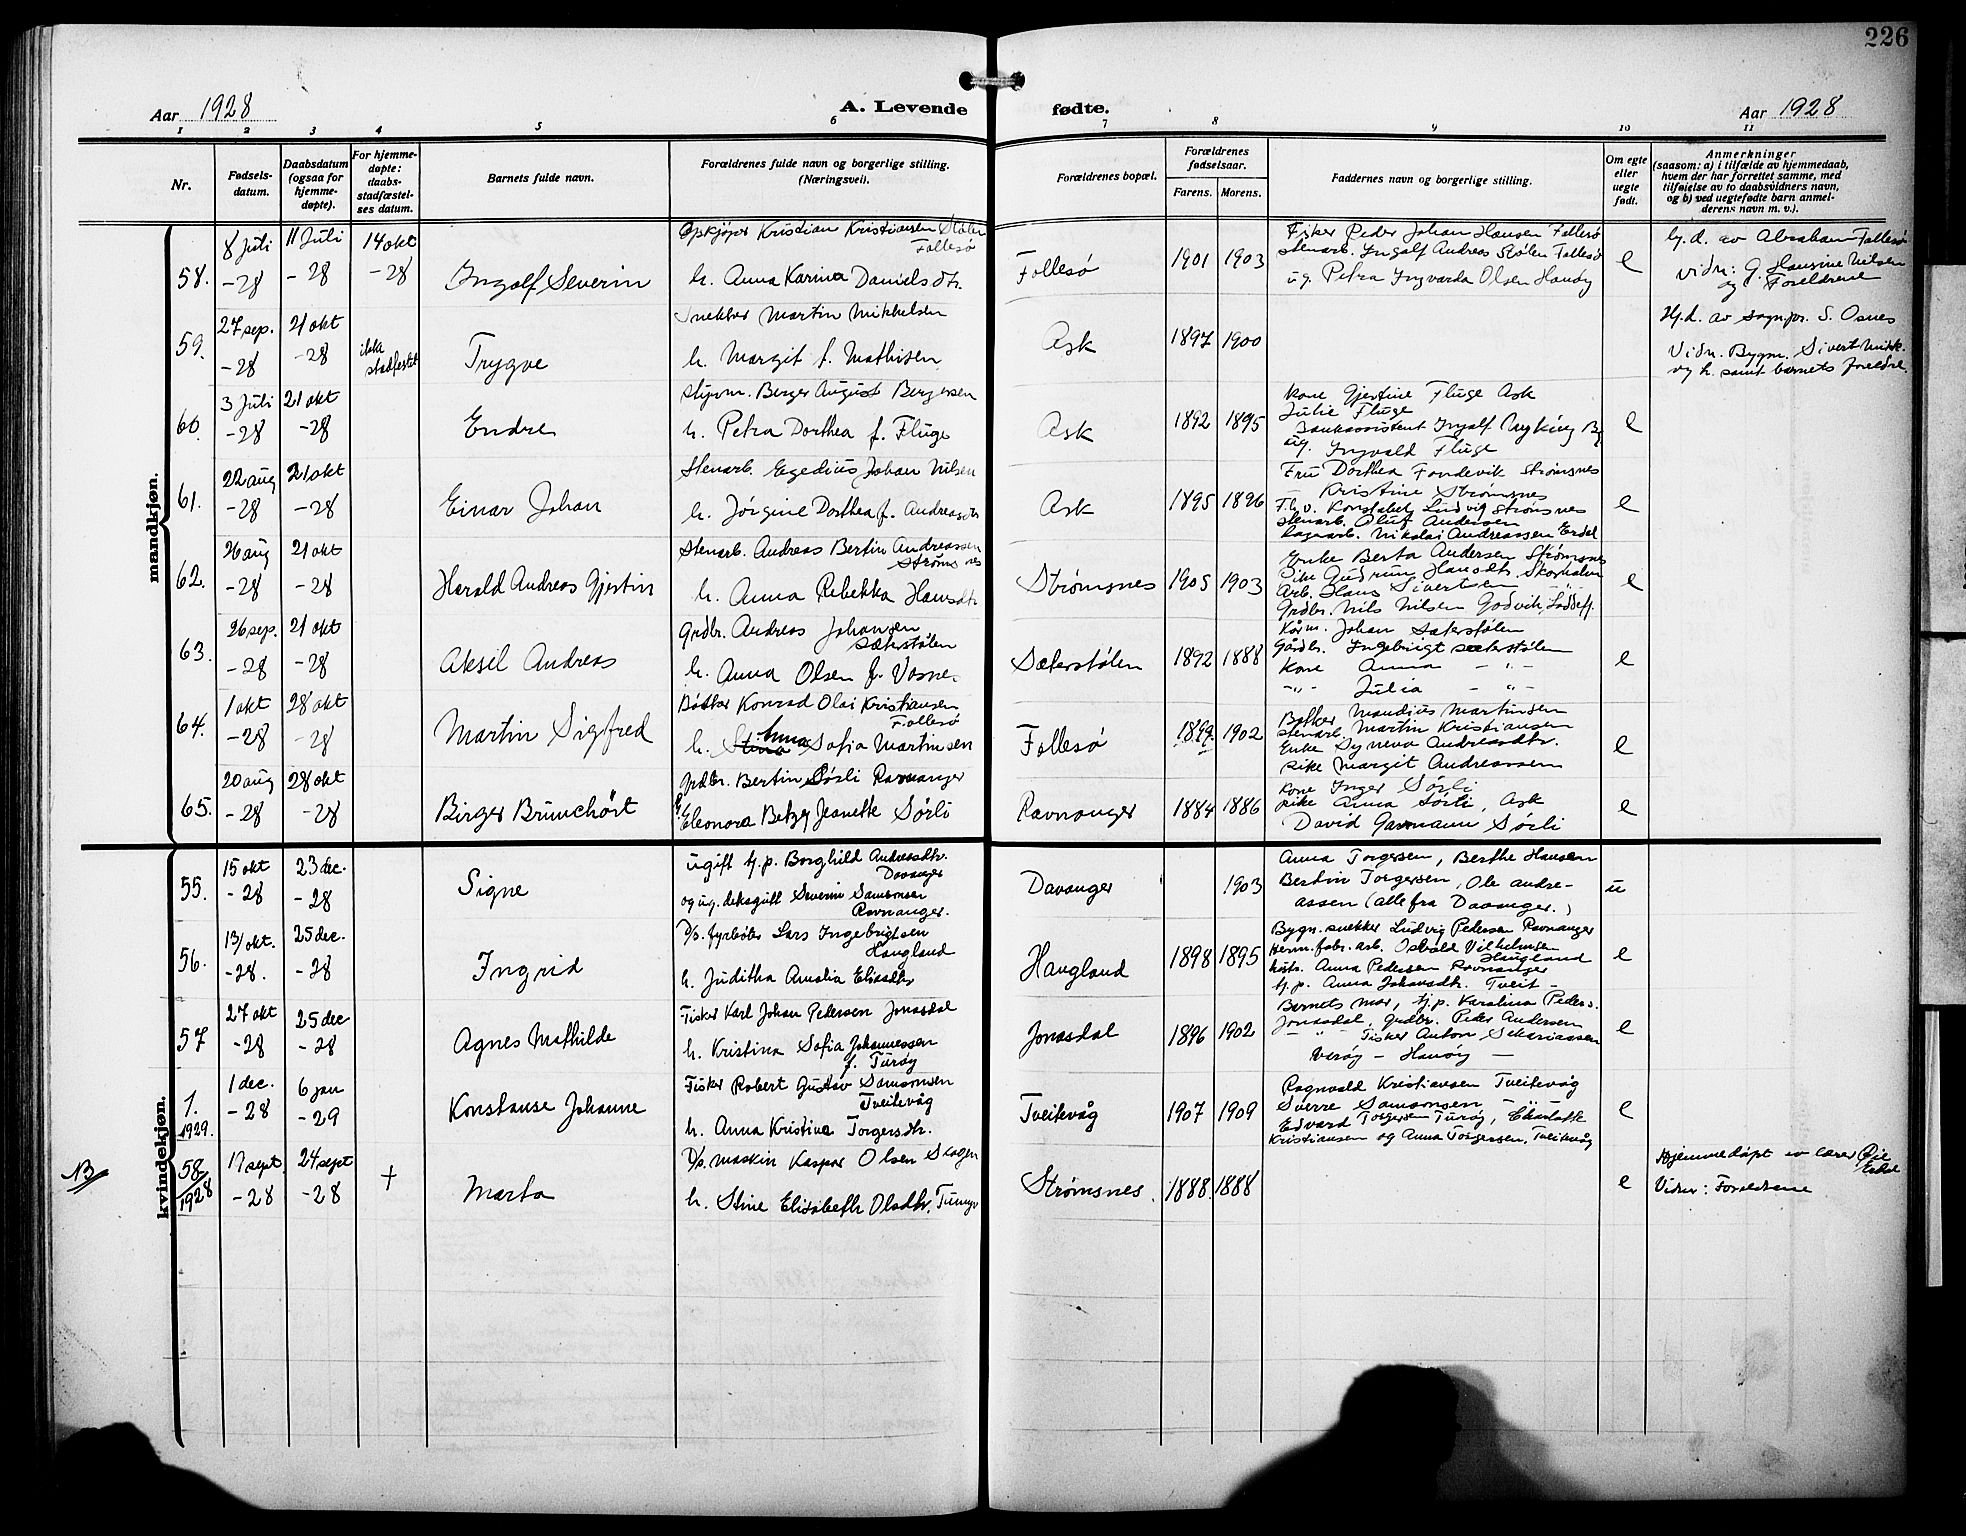 226
Aar 1928
A. Levende
fødte.
Aar 1928
1 2 3 4 5 6 7 8 9 10 11
Nr.
Fødsels-
datum.
Daabsdatum
(ogsaa for
hjemme-
døpte).
For hjemme-
døpte:
daabs-
stadfæstel-
ses datum.
Barnets fulde navn.
Forældrenes fulde navn og borgerlige stilling.
(Næringsvei).
Forældrenes bopæl.
Forældrenes
fødselsaar.
Farens. Morens.
Faddernes navn og borgerlige stilling.
Om egte
eller
uegte
født.
Anmerkninger
(saasom: a) i tilfælde av hjemmedaab,
hvem der har forrettet samme, med
tilføielse av to daabsvidners navn,
og b) ved uegtefødte barn anmel-
derens navn m. v.).
mandkjøn.
58.
8 Juli
-28
11 Juli
-28
14 okt
-28
Ingolf Severin
Opkjøper Kristian Kristiansen Stølen
Follesø
h. Anna Karina Daniels dtr.
Follesø
1901 1903
Fisker Peder Johan Hansen Follesø
Stenarb. Ingolf Andreas Stølen Follesø
ug. Petra Ingvarda Olsen Hanøy
e
Hj.d. av Abraham Follesø
vidn: G. Hansine Nilsen
og Foreldrene
59.
27 sep.
-28
21 okt
-28
ikke
stadfestet
Trygve
Snekker Martin Mikkelsen
h. Margit f. Mathisen
Ask
1897 1900
Hj.d. av sogn.pr. S. Osnes
Vidn. Bygm. Sivert Mikk.
og h. samt barnets foreldre.
60.
3 Juli
-28
21 okt
-28
Endre
Styrm. Berger August Bergersen
h. Petra Dorthea f. Fluge
Ask
1892 1895
Kone Gjertine Fluge Ask
Julie Fluge
Bankassistent Ingolf Nyking
ug. Ingvald Fluge
e
61.
22 aug
-28
21 okt
-28
Einar Johan
Stenarb. Egedius Johan Nilsen
h. Jørgine Dorthea f. Andreasdtr
Ask
1895 1896
Fru Dorthea Fondevik Strømsnes
Kristine Strømsnes
F.h.v. Konstabel Ludvig Strømsnes
Stenarb. Oluf Andersen
Nikolai Andreassen Erdal
e
62.
26 aug
-28
21 okt
-28
Harald Andreas Gjertin
Stenarb. Andreas Bertin Andreassen
Strømsnes
h. Anna Rebekka Hansdtr
Strømsnes
1905 1903
Enke Berta Andersen Strømsnes
Pike Gudrun Hansdtr.
Arb. Hans Sivertsen
Grdbr. Nils Nilsen Godvik,
e
63.
26 sep.
-28
21 okt
-28
Aksel Andreas
Grdbr. Andreas Johansen
Sæterstølen
h. Anna Olsen f.
Sæterstølen
1892 1888
Kårm. Johan Sæterstølen
Gårdbr. Ingebrigt Sæterstølen
Kone Anna - " -
- " - Julia - " -
e
64.
1 okt
-28
28 okt
-28
Martin Sigfred
Bøtker Konrad Olai Kristiansen
Follesø
Anna
h. Stina Sofia Martinsen
Follesø
1899 1902
Bøtker Mandius Martinsen
Stenarb. Martin Kristiansen
Enke Syneva Andreasdtr.
Pike Margit Andreassen
e
65.
20 aug
-28
28 okt
-28
Birger Brunchørt
Grdbr. Bertin Sørli Ravnanger
Eleonora Betzy Jeanette Sørli
Ravnanger
1884 1886
Kone Inger Sørli
Pike Anna Sørli, Ask
David Garmann Sørli
e
kvindekjøn.
55.
15 okt
-28
23 dec.
-28
Signe
ugift tj.p. Borghild Andreasdtr.
Davanger
og ug. deksgutt Severin Samsonsen
Ravnanger.
Davanger
1903
Anna Torgersen, Berthe Hansen
Bertin Torgersen, Ole Andre-
assen (alle fra Davanger.)
u
56.
13/okt.
-28.
25 dec.
-28
Ingrid
D/s. fyrbøter Lars Ingebrigtsen
Haugland
h. Juditha Amalia Eliasdtr
Haugland
1898 1895
Bygn.snekker Ludvig Pedersen Ravnanger
Herm.fabr.arb. Osvald Vilhelmsen
Haugland
hustr. Anna Pedersen Ravnanger
tj.p. Anna Johansdtr. Tveit -
e
57
27 okt
-28
25 dec
-28
Agnes Mathilde
Fisker Karl Johan Pedersen Jonasdal
h. Kristina Sofia Johannessen
f. Turøy
Jonasdal
1896 1902
Barnets mor, tj.p. Karolina Peders.
Jonasdal, grdbr. Peder Andersen
- " - Fisker Anton Sakariassen
Hanøy -
e
1.
1929.
1 dec.
-28
6 jan
-29
Konstanse Johanne
Fisker Robert Gustav Samsonsen
Tveitevåg
h. Anna Kristina Torgersdtr.
Tveitevåg
1907 1909
Ragnvald Kristiansen Tveitevåg
Sverre Samsonsen - " -
Edvard Torgersen Turøy, Charlotte
Kristiansen og Anna Torgersen, Tveitevåg
e
NB
58/1928
17 sept.
-28
24 sept
-28
+
Marta
D/s. maskin Kaspar Olsen Skogen
h. Stine Elisabeth Olsdtr.
Strømsnes.
1888. 1888
e
Hjemmedøpt av lærer
Erdal
Vidner: Foreldrene